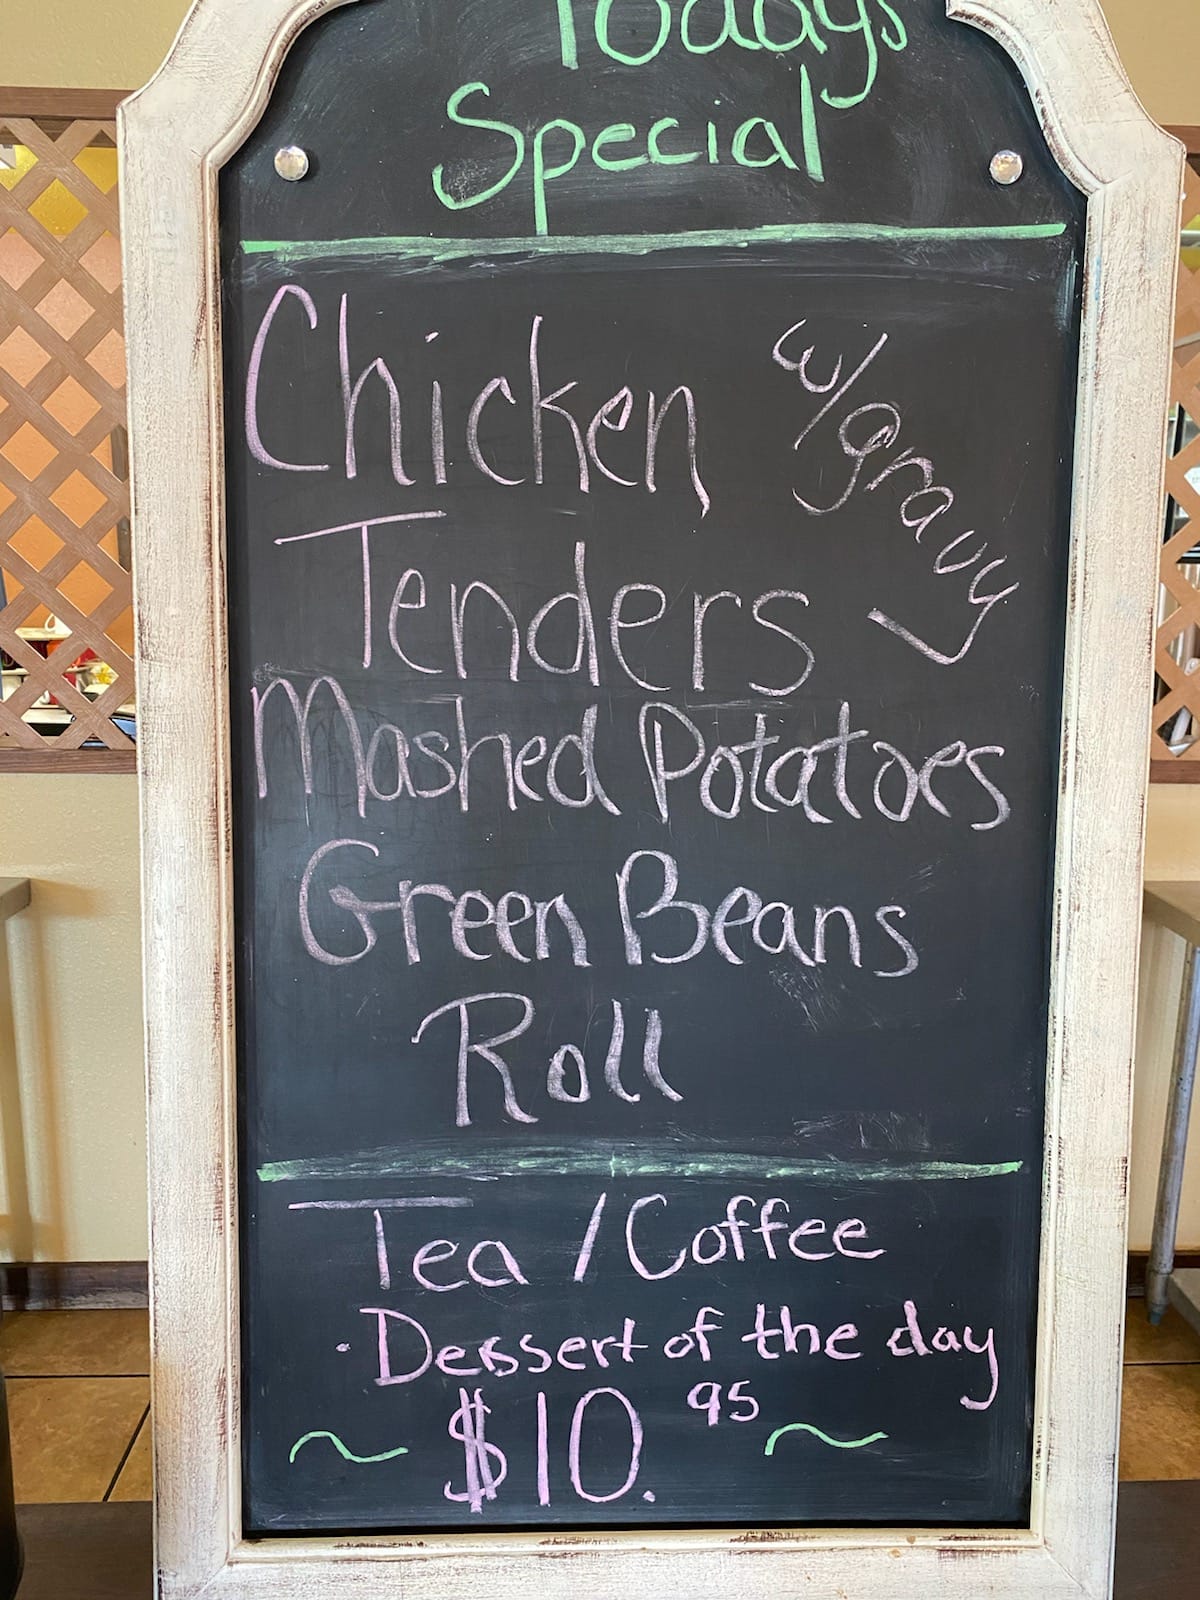 Todays
Special
Chicken
w/gravy
Tenders
Mashed Potatoes
Green Beans
Roll
Tea / Coffee
· Dessert of the day
~ $10.95 ~